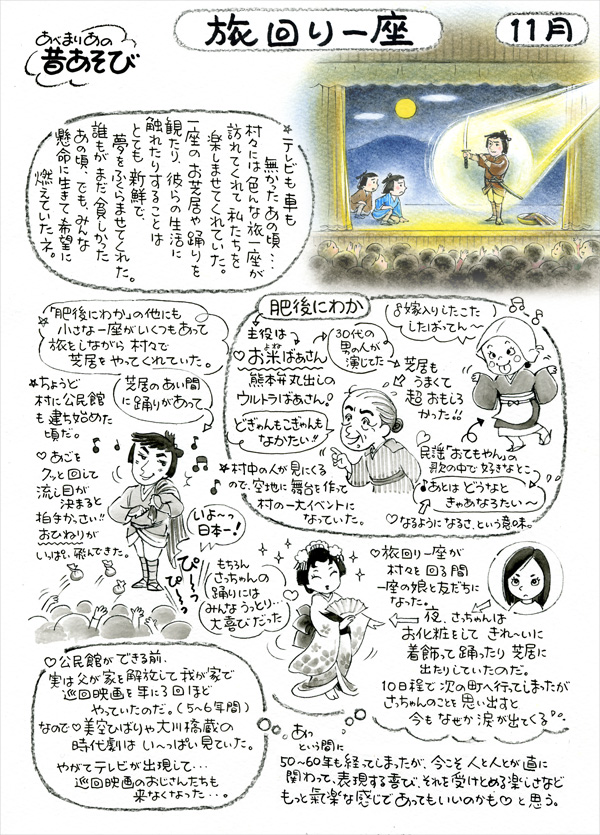 あべまりあの
昔あそび
旅回り一座
11月
★テレビも車も
無かったあの頃…
村々には色んな旅一座が
訪れてくれて私たちを
楽しませてくれていた。
一座のお芝居や踊りを
観たり、彼らの生活に
触れたりすることは
とても新鮮で、
夢をふくらませてくれた。
誰もがまだ貧しかった
あの頃、でも、みんな
懸命に生きて希望に
燃えていたネ。
★「肥後にわか」の他にも
小さな一座がいくつもあって
旅をしながら村々で
芝居をやってくれていた。
★ちょうど
村に公民館
も建ち始めた
頃だ。
芝居のあい間
に踊りがあって
♡あごを
クッと回して
流し目が
決まると
拍手かっさい!!
おひねりが
いっぱい飛んできた。
いよ~っ
日本一!
ぴ~っ
ぴ~っ
肥後にわか
主役は
♡お米ばあさん
よね
熊本弁丸出しの
ウルトラばあさん!
どぎゃんもこぎゃんも
なかたい!!
30代の
男の人が
演じてた
芝居も
うまくて
超おもしろ
かった!!
♪嫁入りしたこた
したばってん~
民謡「おてもやん」の
歌の中で好きなとこ
♪あとはどうなと
きゃあなろたい~
♡なるようになるさ、という意味。
★村中の人が見にくる
ので、空地に舞台を作って
村の一大イベントに
なっていた。
もちろん
さっちゃんの
踊りには
みんなうっとり…
大喜びだった
♡旅回り一座が
村々を回る間
一座の娘と友だちに
なった。
夜、さっちゃんは
お化粧をして きれ~いに
着飾って踊ったり芝居に
出たりしていたのだ。
10日程で次の町へ行ってしまったが
さっちゃんのことを思い出すと
今もなぜか涙が出てくる
♡公民館ができる前、
実は父が家を解放して我が家で
巡回映画を年に3回ほど
やっていたのだ。(5~6年間)
なので♡美空ひばりや大川橋蔵の
時代劇はい~っぱい見ていた。
やがてテレビが出現して…
巡回映画のおじさんたちも
来なくなった…。
あっ
という間に
50~60年も経ってしまったが、今こそ人と人とが直に
関わって、表現する喜び、それを受けとめる楽しさなど
もっと氣楽な感じであってもいいのかも♡と思う。